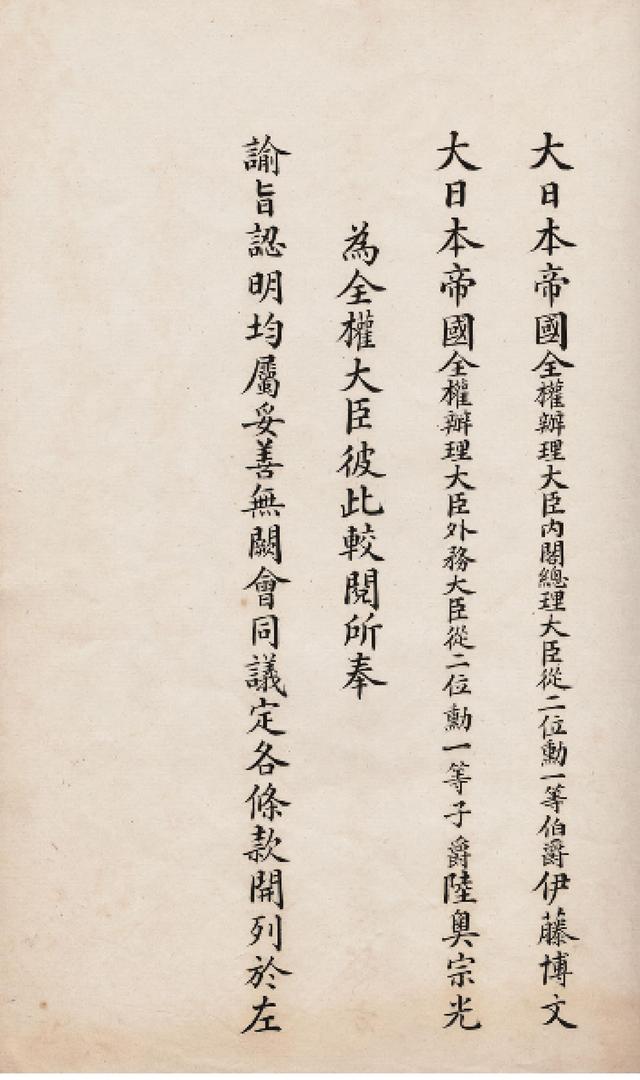 大日本帝國全權辦理大臣內閣總理大臣從二位勳一等伯爵伊藤博文
大日本帝國全權辦理大臣外務大臣從二位勳一等子爵陸奧宗光
為全權大臣彼此較閱所奉
諭旨認明均屬妥善無闕會同議定各條款開列於左